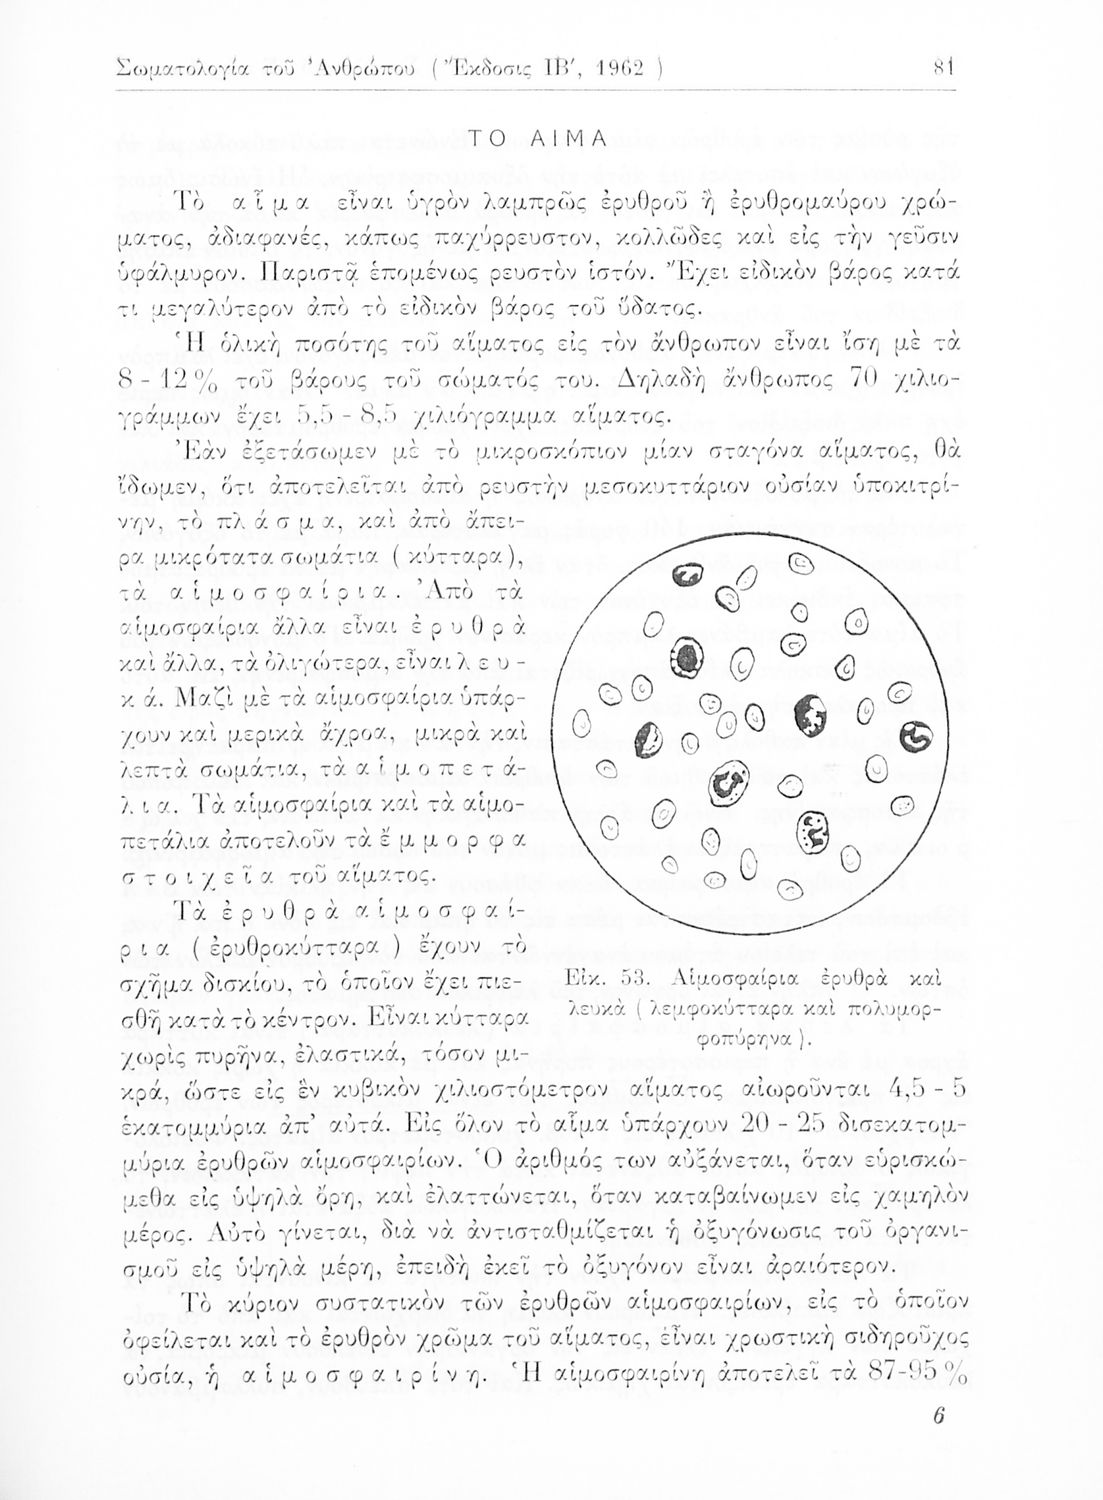 Σωματολογία τοῦ Ἀνθρώπου ( Ἔκδοσις ΙΒ', 1962 ) 81
ΤΟ ΑΙΜΑ
Τὸ αἷμα εἶναι ὑγρὸν λαμπρῶς ἐρυθροῦ ἢ ἐρυθρομαύρου χρώ-
ματος, ἀδιαφανές, κάπως παχύρρευστον, κολλῶδες καὶ εἰς τὴν γεῦσιν
ὑφάλμυρον. Παριστᾷ ἑπομένως ρευστὸν ἱστόν. Ἔχει εἰδικὸν βάρος κατά
τι μεγαλύτερον ἀπὸ τὸ εἰδικὸν βάρος τοῦ ὕδατος.
Ἡ ὁλικὴ ποσότης τοῦ αἵματος εἰς τὸν ἄνθρωπον εἶναι ἴση μὲ τὰ
8 - 12% τοῦ βάρους τοῦ σώματός του. Δηλαδὴ ἄνθρωπος 70 χιλιο-
γράμμων ἔχει 5,5 - 8,5 χιλιόγραμμα αἵματος.
Ἐὰν ἐξετάσωμεν μὲ τὸ μικροσκόπιον μίαν σταγόνα αἵματος, θὰ
ἴδωμεν, ὅτι ἀποτελεῖται ἀπὸ ρευστὴν μεσοκυττάριον οὐσίαν ὑποκιτρί-
νην, τὸ πλάσμα, καὶ ἀπὸ ἄπει-
ρα μικρότατα σωμάτια ( κύτταρα ),
τὰ αἱμοσφαίρια. Ἀπὸ τὰ
αἱμοσφαίρια ἄλλα εἶναι ἐρυθρὰ
καὶ ἄλλα, τὰ ὀλιγώτερα, εἶναι λευ-
κά. Μαζὶ μὲ τὰ αἱμοσφαίρια ὑπάρ-
χουν καὶ μερικὰ ἄχροα, μικρὰ καὶ
λεπτὰ σωμάτια, τὰ αἱμοπετά-
λια. Τὰ αἱμοσφαίρια καὶ τὰ αἱμο-
πετάλια ἀποτελοῦν τὰ ἔμμορφα
στοιχεῖα τοῦ αἵματος.
Τὰ ἐρυθρὰ αἱμοσφαί-
ρια ( ἐρυθροκύτταρα ) ἔχουν τὸ
σχῆμα δισκίου, τὸ ὁποῖον ἔχει πιε-
σθῆ κατὰ τὸ κέντρον. Εἶναι κύτταρα
χωρὶς πυρῆνα, ἐλαστικά, τόσον μι-
κρά, ὥστε εἰς ἓν κυβικὸν χιλιοστόμετρον αἵματος αἰωροῦνται 4,5 - 5
ἑκατομμύρια ἀπ' αὐτά. Εἰς ὅλον τὸ αἷμα ὑπάρχουν 20 - 25 δισεκατομ-
μύρια ἐρυθρῶν αἱμοσφαιρίων. Ὁ ἀριθμός των αὐξάνεται, ὅταν εὑρισκώ-
μεθα εἰς ὑψηλὰ ὄρη, καὶ ἐλαττώνεται, ὅταν καταβαίνωμεν εἰς χαμηλὸν
μέρος. Αὐτὸ γίνεται, διὰ νὰ ἀντισταθμίζεται ἡ ὀξυγόνωσις τοῦ ὀργανι-
σμοῦ εἰς ὑψηλὰ μέρη, ἐπειδὴ ἐκεῖ τὸ ὀξυγόνον εἶναι ἀραιότερον.
Τὸ κύριον συστατικὸν τῶν ἐρυθρῶν αἱμοσφαιρίων, εἰς τὸ ὁποῖον
ὀφείλεται καὶ τὸ ἐρυθρὸν χρῶμα τοῦ αἵματος, εἶναι χρωστικὴ σιδηροῦχος
οὐσία, ἡ αἱμοσφαιρίνη. Ἡ αἱμοσφαιρίνη ἀποτελεῖ τὰ 87-95%
Εἰκ. 53. Αἱμοσφαίρια ἐρυθρὰ καὶ
λευκὰ ( λεμφοκύτταρα καὶ πολυμορ-
φοπύρηνα ).
6